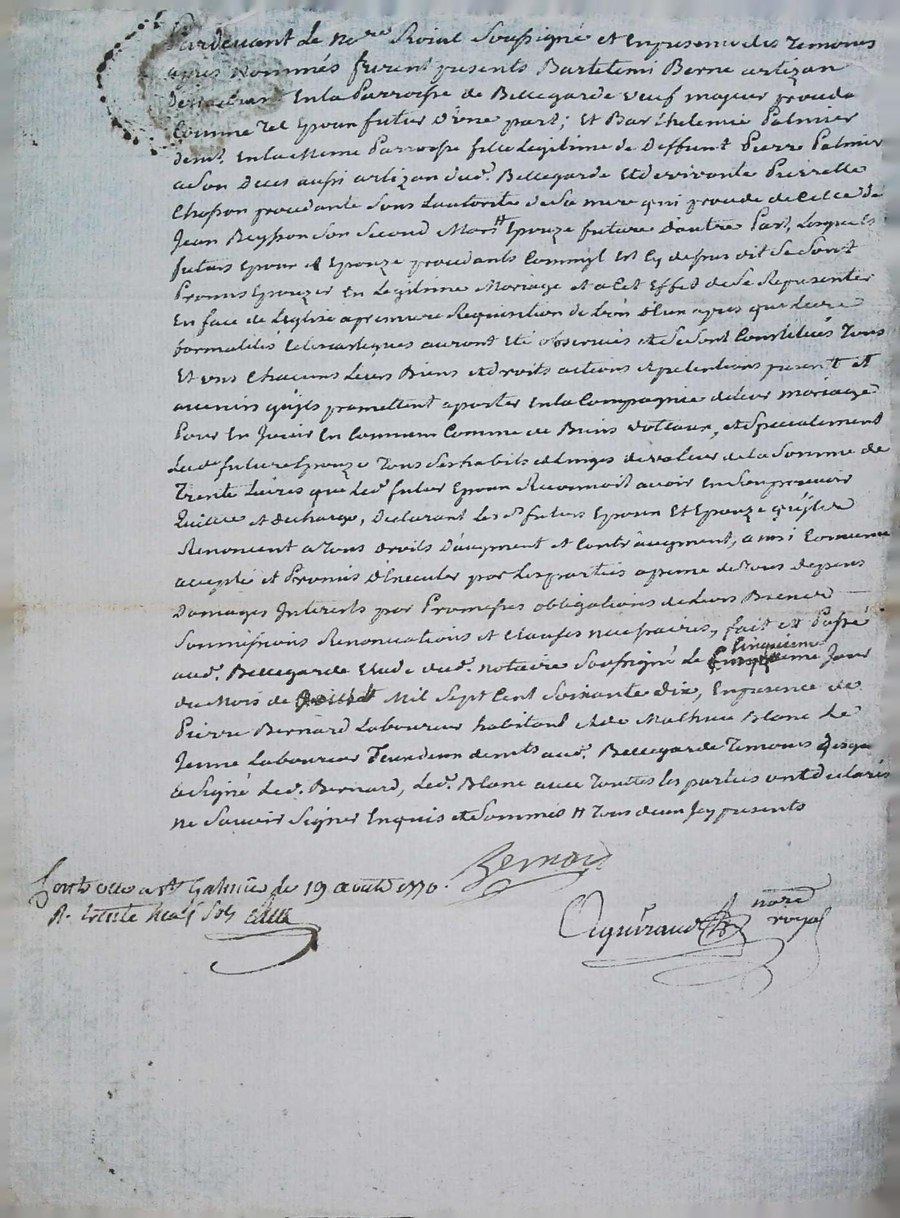 Pardevant le no.re Roial Soussigné et En presence des Temoins
apres Nommés furent presents Bartelemi Berne artizan
demeurant En la Parroisse de Bellegarde veuf majeur proceda
Comme Tel Epoux futur D'une part; Et Barthelemie Palmier
dem.t En la Meme Parroisse fille Legitime de Deffunt Pierre Palmier
a Son Deces aussi artizan dud. Bellegarde Et de vivante Pierrette
procedante Sous Lautorité de Sa mere qui procede de Celle de
Jean Son Second Mari Epouze future D'autre Part, Lesquels
futurs Epoux et Epouze procedants Comm'il Est Cy dessus dit Se Sont
Promis Epouzer En Legitime Mariage et a Cet Effet de Se Representer
En face de Leglise a premiere Requisition de L'un D'eux apres que Les
formalités auront Eté observées et Se Sont Constitués Tous
Et uns Chacuns Leurs Biens et droits actions et pretentions present et
avenirs qu'ils promettent aporter En la Compagnie de leur mariage
Pour En Jouir En Commun Comme de Biens dottaux, et Specialement
Lad. future Epouze Tous Ses habits et Linges de valeur de la Somme de
Trente Livres que Led. futur Epoux Reconnoit avoir En Son pouvoir
Quitte et decharge, Declarant Les d. futurs Epoux Et Epouze qu'ils
Renoncent a Tous droits D'augment et Contr'augment, ainsi Convenu
accepté et Promis D'Executer par Les parties a peine de Tous depens
Domages Interests par Promesses obligations de Leurs Biens
Soumissions Renonciations et Clauses necessaires, fait et Passé
aud. Bellegarde Etude dud. notaire Soussigné Le Cinquieme Jour
du Mois de Mil Sept Cent Soixante dix, En presence de
Pierre Bernard Laboureur habitant et de Mathieu Blanc Le
Jeune Laboureur dem.ts aud. Bellegarde Temoins
a Signé Led. Bernard, Led. Blanc avec Toutes les parties ont declarés
ne Scavoir Signer Enquis et Sommés Tous deux Icy presents
Bernard
Contrôlé a St Galmier le 19 aoust 1770.
R. trente neuf Sols
nore
royal